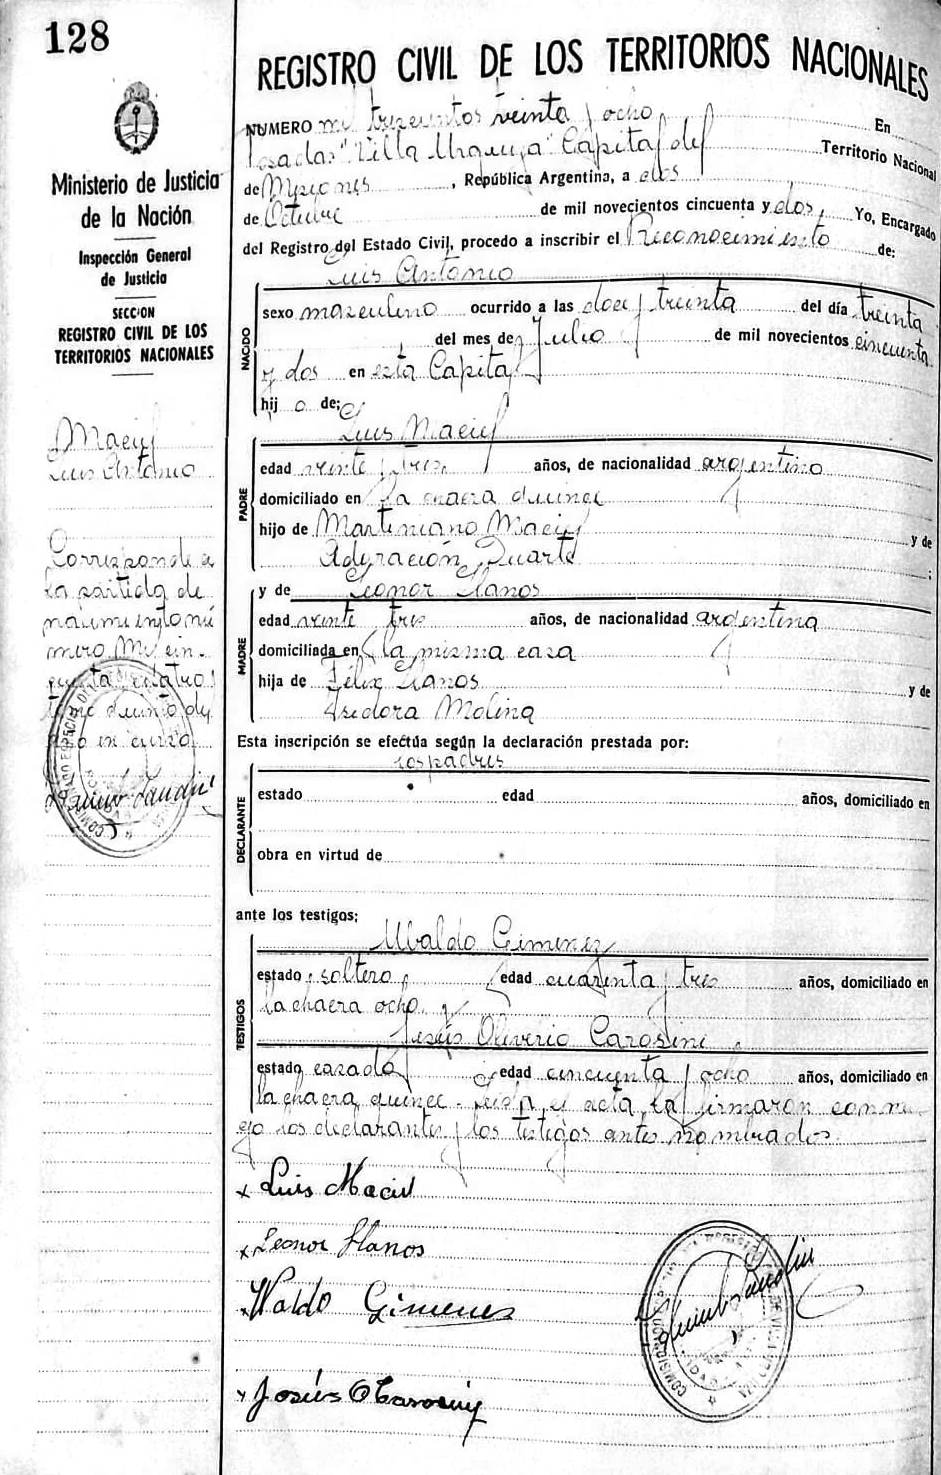 128
REGISTRO CIVIL DE LOS TERRITORIOS NACIONALES
Ministerio de Justicia
de la Nación
Inspección General
de Justicia
SECCION
REGISTRO CIVIL DE LOS
TERRITORIOS NACIONALES
Maciel
Luis Antonio
Corresponde a
la partida de
nacimiento nú
mero Mil cin-
cuenta cuatro
tomo quinto del
año en curso
NUMERO mil trescientos treinta y ocho En
Posadas "Villa Urquiza" Capital del Territorio Nacional
de Misiones, República Argentina, a dos
de Octubre de mil novecientos cincuenta y dos, Yo, Encargado
del Registro del Estado Civil, procedo a inscribir el Reconocimiento de:
Luis Antonio
NACIDO
sexo masculino ocurrido a las doce y treinta del día treinta
del mes de Julio de mil novecientos cincuenta
y dos en esta Capital
hijo de:
Luis Maciel
PADRE
edad veinte y tres años, de nacionalidad argentino
domiciliado en la chacra quince
hijo de Martiniano Maciel y de
Adoración Duarte ;
y de Leonor Llanos
MADRE
edad veinte y tres años, de nacionalidad argentina
domiciliada en la misma casa
hija de Félix Llanos y de
Isidora Molina
Esta inscripción se efectúa según la declaración prestada por:
los padres
DECLARANTE
estado edad años, domiciliado en
obra en virtud de
ante los testigos:
Ubaldo Gimenez
TESTIGOS
estado soltero, edad cuarenta y tres años, domiciliado en
la chacra ocho y
Jesús Oliverio Carosini
estado casado edad cincuenta y ocho años, domiciliado en
la chacra quince. Leida el acta la firmaron conmi-
go los declarantes y los testigos antes nombrados.
x Luis Maciel
x Leonor Llanos
Waldo Gimenez
x Jesús O Carosini